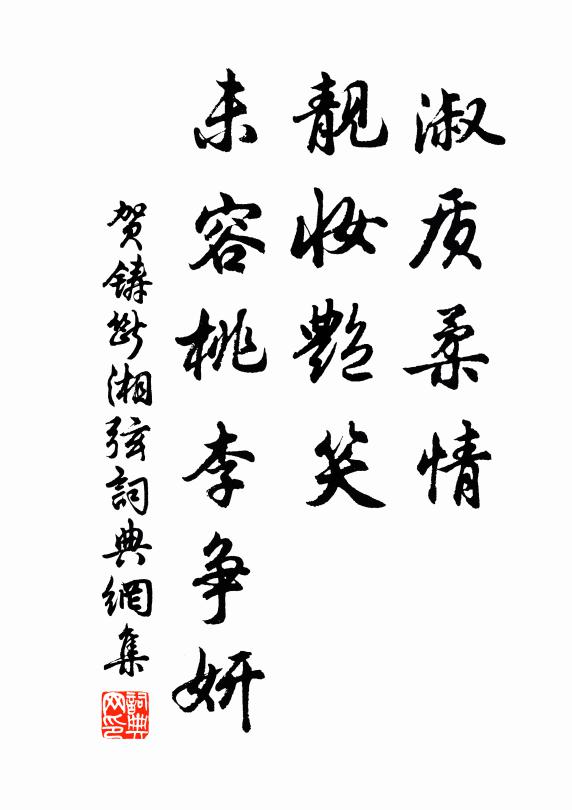 淑质柔情
靓妆艳笑
未容桃李争妍
贺铸断湘弦词典网集
词典网印